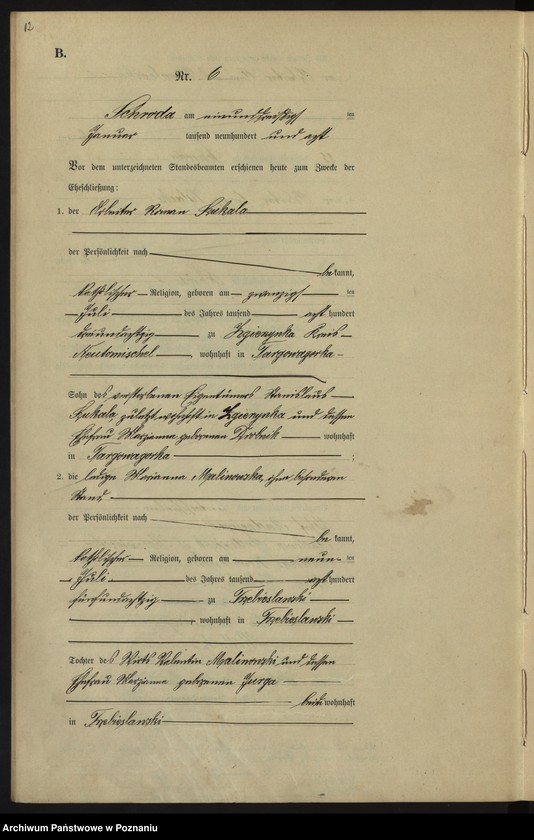 12
B.
Nr. 6
Schroda am einunddreißigsten
Januar tausend neunhundert und acht
Vor dem unterzeichneten Standesbeamten erschienen heute zum Zwecke der
Eheschließung:
1. der Arbeiter Roman Szukala
der Persönlichkeit nach
bekannt,
katholischer Religion, geboren am zwanzigsten
Juli des Jahres tausend acht hundert
dreiundachtzig zu Zgierzynka Kreis
Neutomischel, wohnhaft in Targowagorka
Sohn des verstorbenen Eigentümers Stanislaus
Szukala zuletzt wohnhaft in Zgierzynka und dessen
Ehefrau Marianna geborenen wohnhaft
in Targowagorka ;
2. die ledige Marianna Malinowska, ohne besonderen
Stand,
der Persönlichkeit nach
bekannt,
katholischer Religion, geboren am neunten
Juli des Jahres tausend acht hundert
fünfundachtzig zu Trzebieslawki
, wohnhaft in Trzebieslawki
Tochter des Wirts Valentin Malinowski und dessen
Ehefrau Marianna geborenen Jurga
beide wohnhaft
in Trzebieslawki
Archiwum Państwowe w Poznaniu